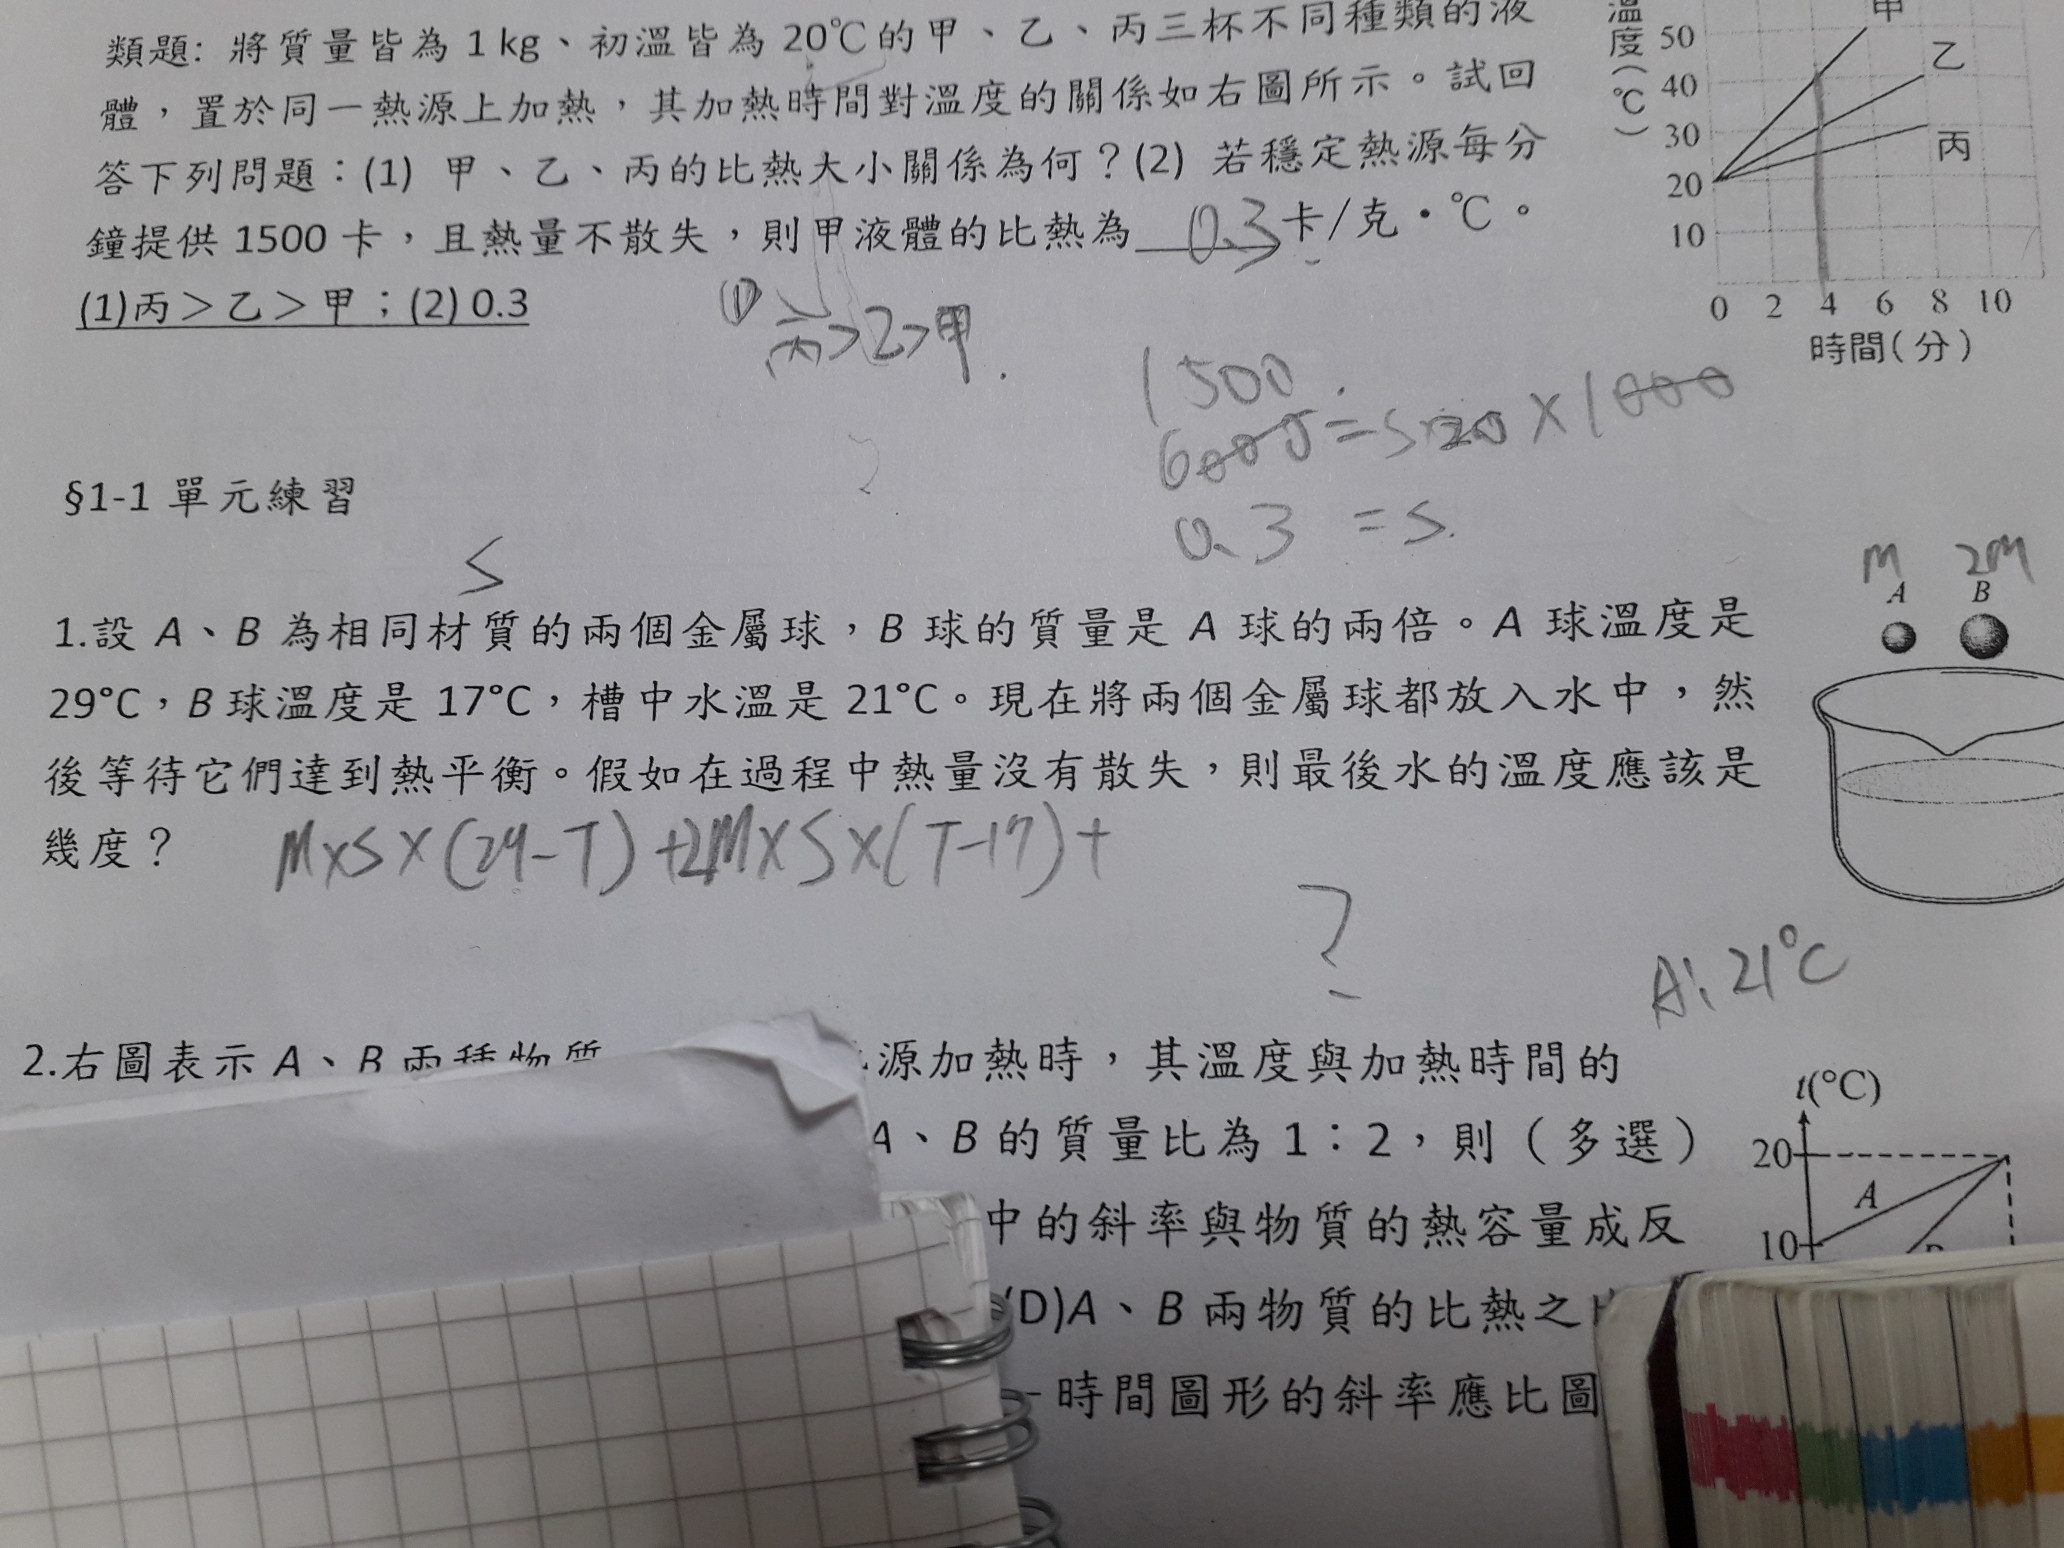 類題: 將質量皆為 1 kg、初溫皆為 20℃的甲、乙、丙三杯不同種類的液
體，置於同一熱源上加熱，其加熱時間對溫度的關係如右圖所示。試回
答下列問題：(1) 甲、乙、丙的比熱大小關係為何？(2) 若穩定熱源每分
鐘提供 1500 卡，且熱量不散失，則甲液體的比熱為 0.3 卡/克・℃。
(1)丙＞乙＞甲；(2) 0.3
① 丙>乙>甲.
溫度(℃)
50
40
30
20
10
甲
乙
丙
0 2 4 6 8 10
時間(分)
1500
6000=S×20×1000
0.3 =S.
§1-1 單元練習
S
M 2M
A B
1.設 A、B 為相同材質的兩個金屬球，B 球的質量是 A 球的兩倍。A 球溫度是
29°C，B 球溫度是 17°C，槽中水溫是 21°C。現在將兩個金屬球都放入水中，然
後等待它們達到熱平衡。假如在過程中熱量沒有散失，則最後水的溫度應該是
幾度？
M×S×(29-T)+2M×S×(T-17)+
?
A: 21°C
2.右圖表示 A、B 兩種物質
源加熱時，其溫度與加熱時間的
A、B 的質量比為 1：2，則（多選）
中的斜率與物質的熱容量成反
(D)A、B 兩物質的比熱之
時間圖形的斜率應比圖
t(°C)
20
A
10